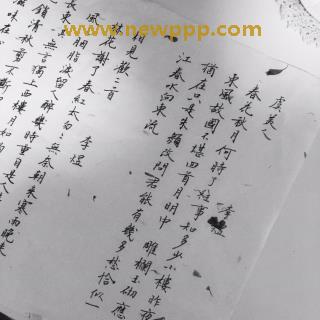 www.newppp.com
虞美人 李煜
春花秋月何時了往事知多少小樓昨夜
東風故國不堪回首月明中 雕欄玉砌應
猶在只是朱顏改問君能有幾多愁恰似一
江春水向東流
見歡二首 李煜
林花謝了春紅太匆 無奈朝來寒雨晚來
風 胭脂淚留人醉幾時重自是人
長東 無言獨上 樓月如
鎖清秋剪不斷
滋味在